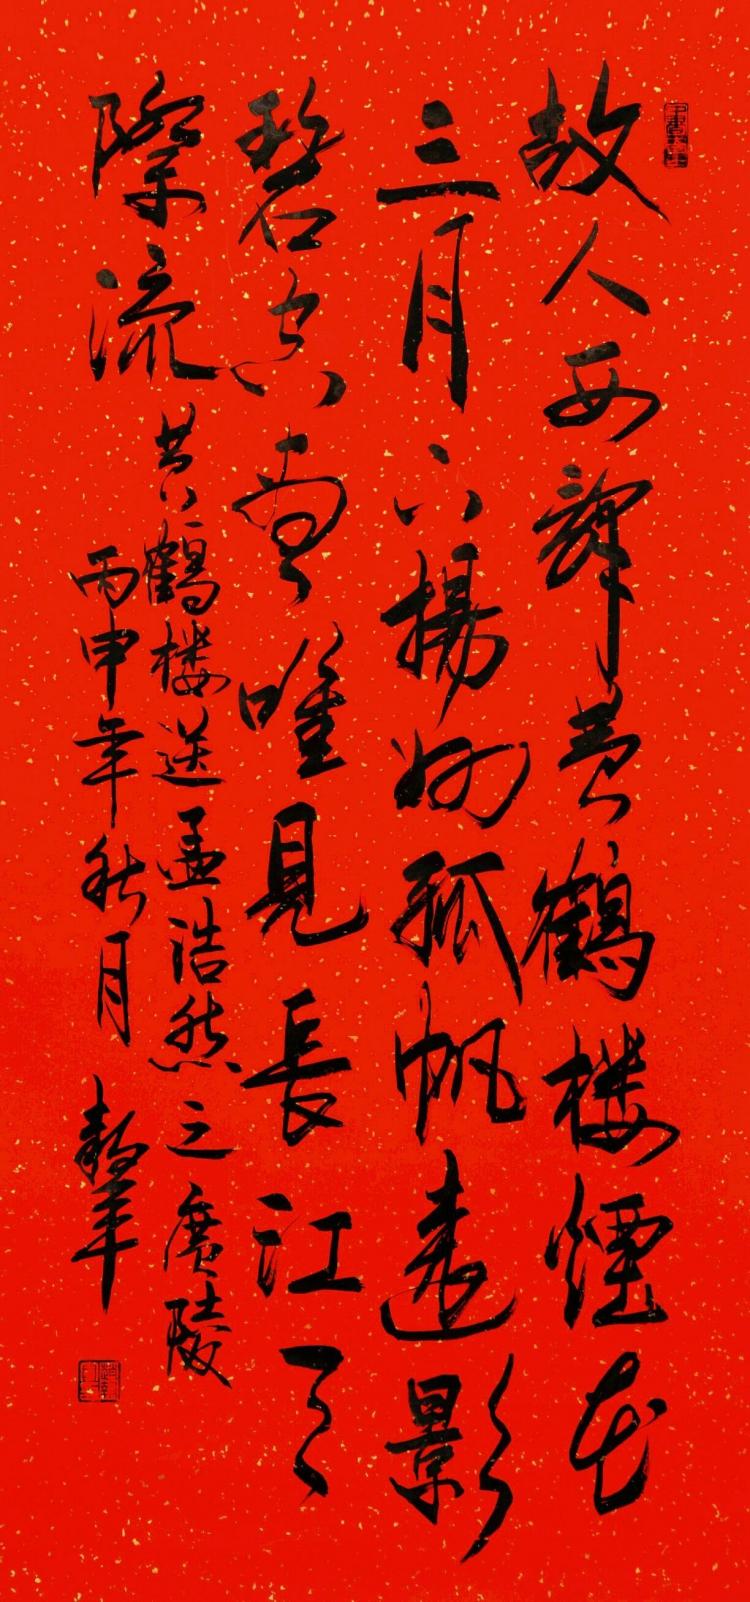 故人西辞黄鹤楼煙花
三月下揚州孤帆遠影
碧空盡唯見長江天
際流
黄鹤楼送孟浩然之廣陵
丙申年秋月